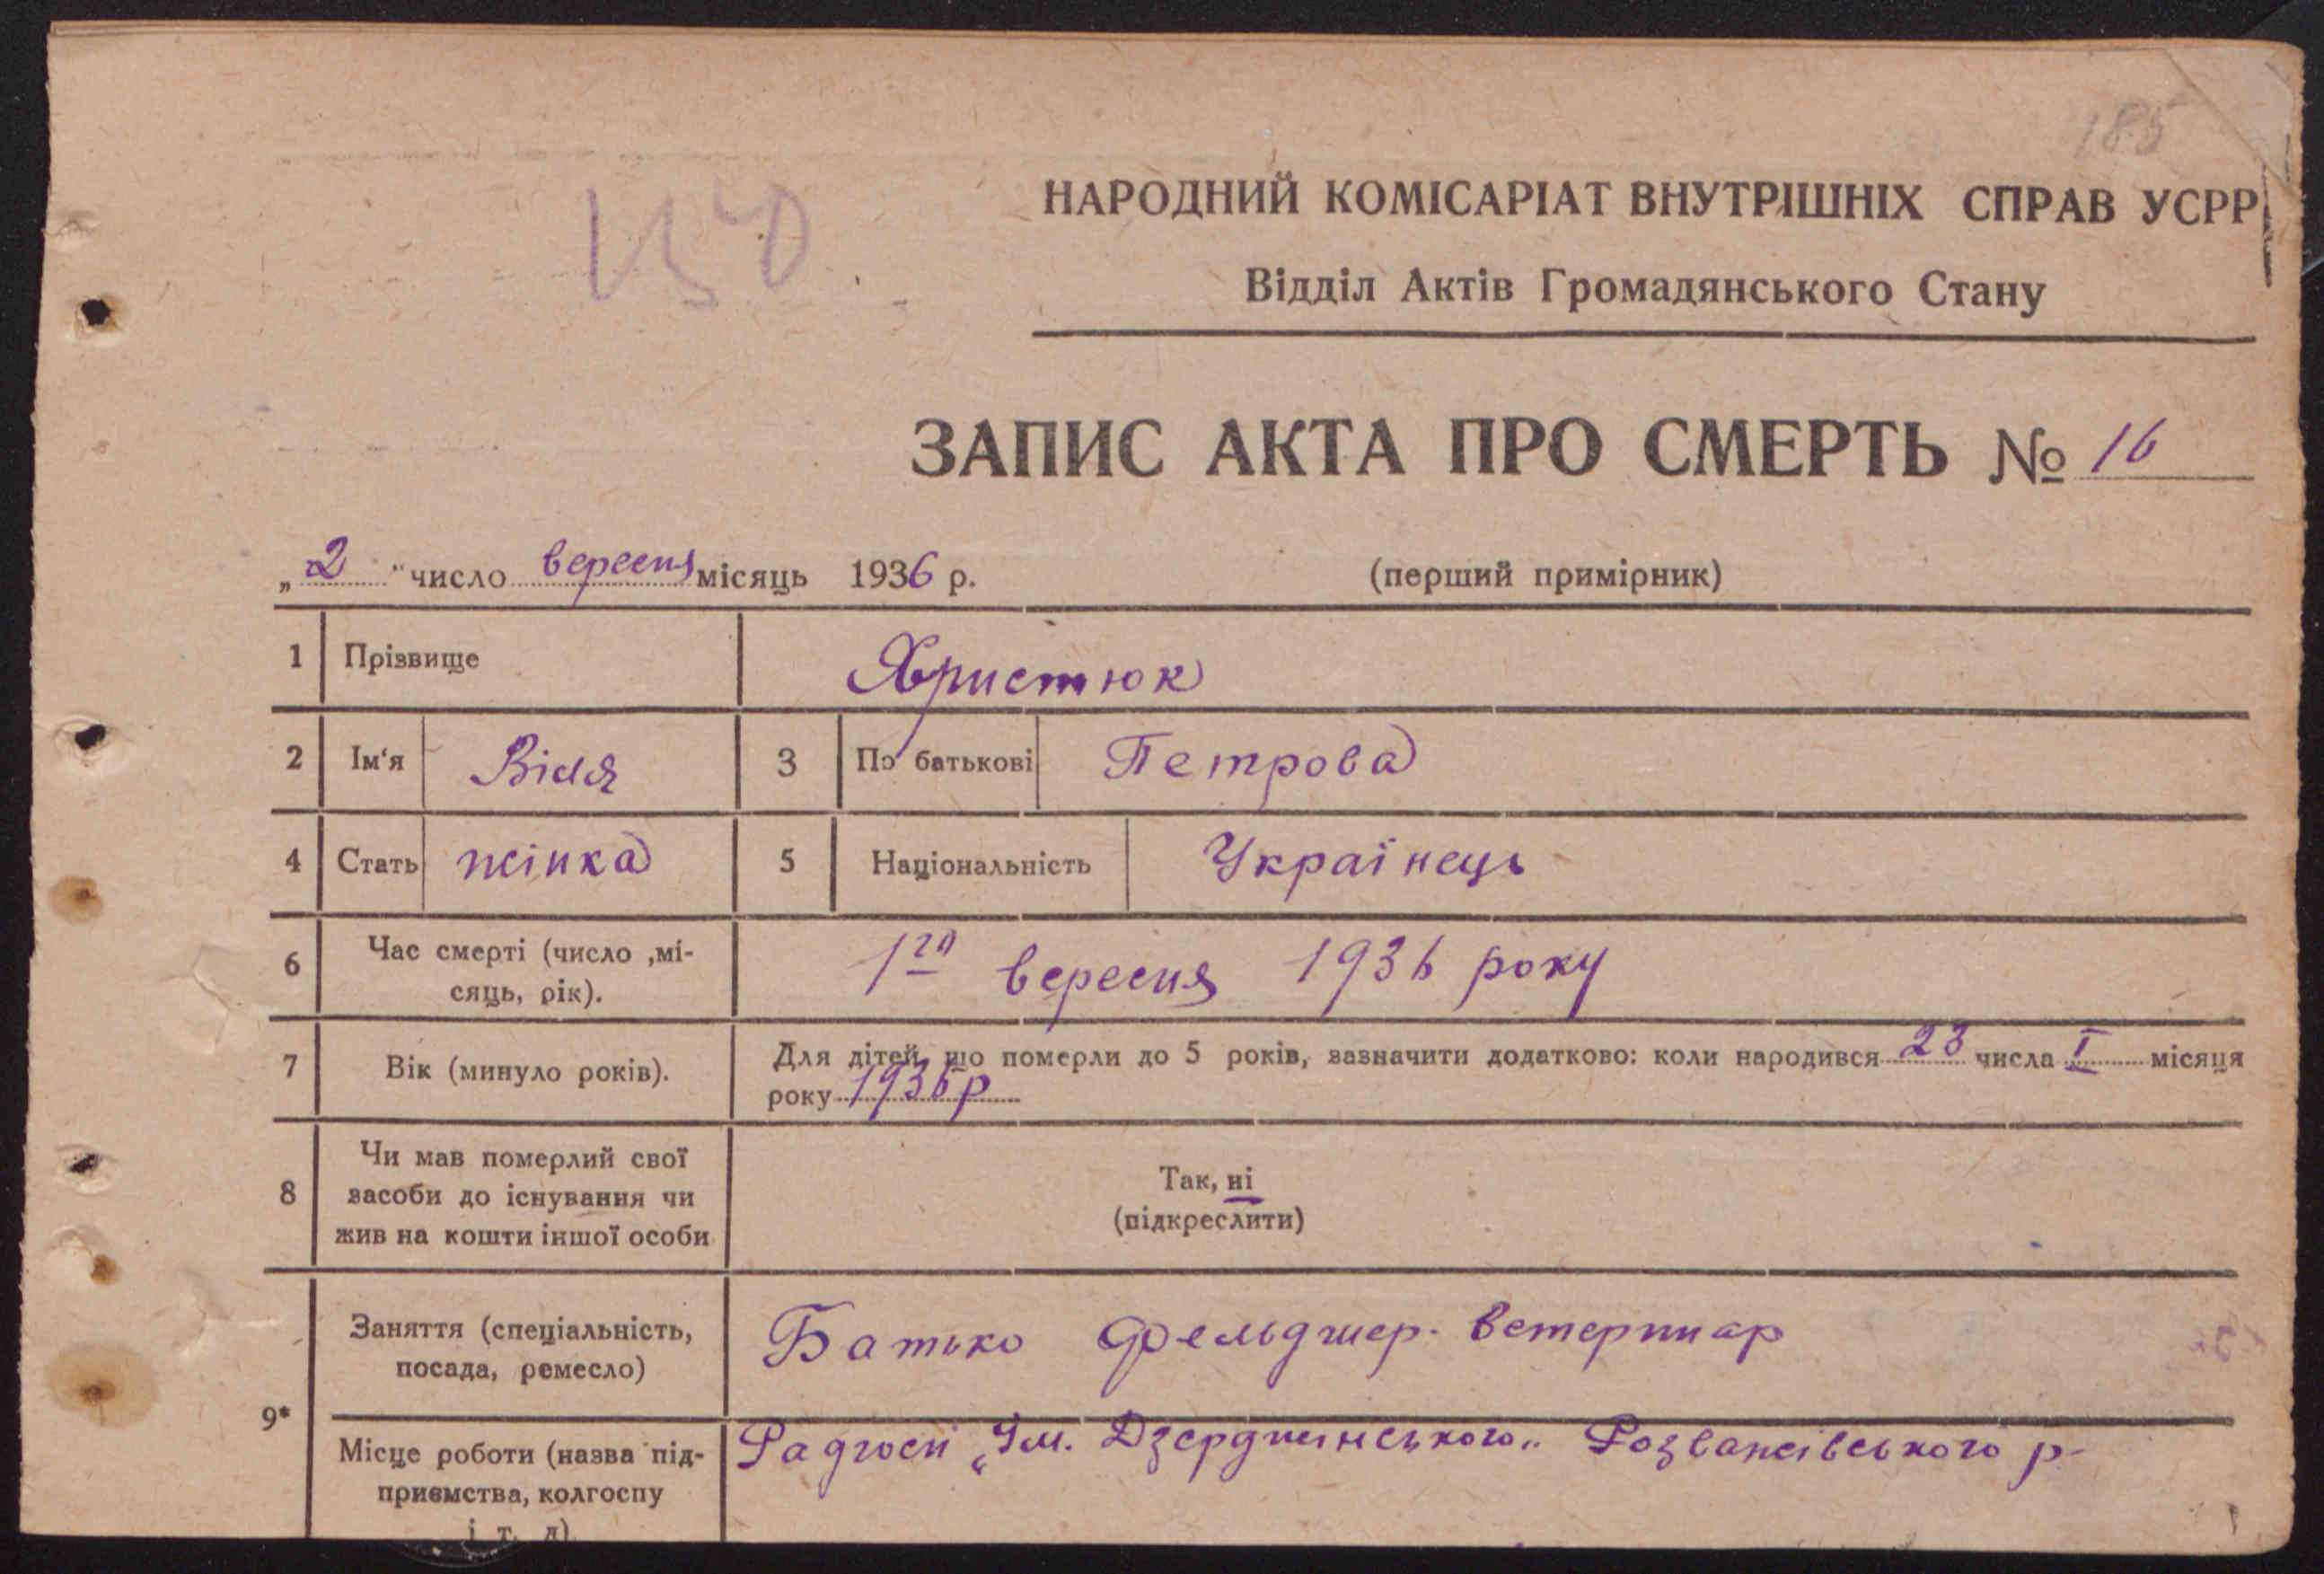 185
150
НАРОДНИЙ КОМІСАРІАТ ВНУТРІШНІХ СПРАВ УСРР
Відділ Актів Громадянського Стану
ЗАПИС АКТА ПРО СМЕРТЬ № 16
„2" число вересня місяць 1936 р. (перший примірник)
1 Прізвище Христюк
2 Ім'я Віля 3 По батькові Петрова
4 Стать жінка 5 Національність Українець
6 Час смерті (число ,мі-
сяць, рік). 1го вересня 1936 року
7 Вік (минуло років). Для дітей, що померли до 5 років, зазначити додатково: коли народився 23 числа I місяця
року 1936р
8 Чи мав померлий свої
засоби до існування чи
жив на кошти іншої особи
Так, ні
(підкреслити)
9* Заняття (спеціальність,
посада, ремесло) Батько Фельдшер-ветеринар
Місце роботи (назва під-
приємства, колгоспу
і т. д) Радгосп „Ім. Дзержинського" Розважівського р-